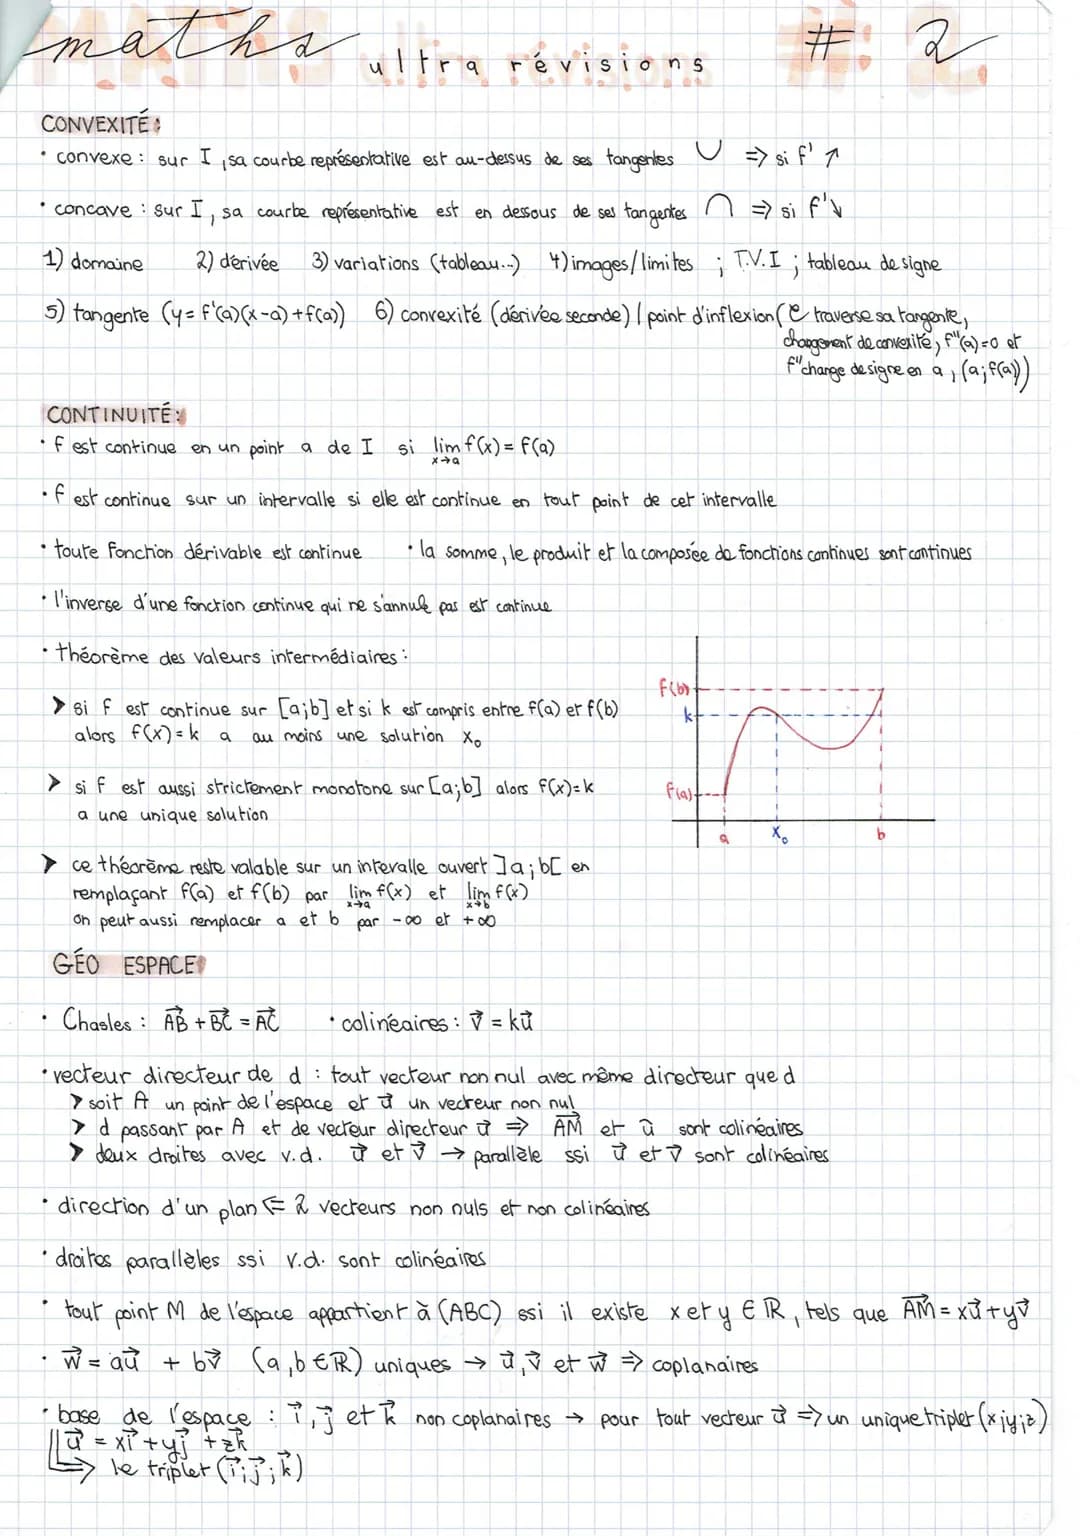 maths ultra révisions #2
CONVEXITÉ:
• convexe : sur I, sa courbe représentative est au-dessus de ses tangentes ∪ => si f' ↗
• concave : sur I, sa courbe représentative est en dessous de ses tangentes ∩ => si f' ↘
1) domaine 2) dérivée 3) variations (tableau...) 4) images/limites ; T.V.I ; tableau de signe
5) tangente (y = f'(a)(x-a)+f(a)) 6) convexité (dérivée seconde) / point d'inflexion (C traverse sa tangente,
changement de convexité, f"(a)=0 et
f" change de signe en a, (a;f(a))
CONTINUITÉ:
• f est continue en un point a de I si lim f(x) = f(a)
x→a
• f est continue sur un intervalle si elle est continue en tout point de cet intervalle
• toute fonction dérivable est continue • la somme, le produit et la composée de fonctions continues sont continues
• l'inverse d'une fonction continue qui ne s'annule pas est continue
• théorème des valeurs intermédiaires :
➤ si f est continue sur [a;b] et si k est compris entre f(a) et f(b)
alors f(x)=k a au moins une solution x₀
➤ si f est aussi strictement monotone sur [a;b] alors f(x)=k
a une unique solution
➤ ce théorème reste valable sur un intevalle ouvert ]a;b[ en
remplaçant f(a) et f(b) par lim f(x) et lim f(x)
x→a x→b
on peut aussi remplacer a et b par -∞ et +∞
f(b)
k
f(a)
a x₀ b
GÉO ESPACE
• Chasles : A⃗B + B⃗C = A⃗C • colinéaires : v⃗ = ku⃗
• vecteur directeur de d : tout vecteur non nul avec même directeur que d
➤ soit A un point de l'espace et u⃗ un vecteur non nul
➤ d passant par A et de vecteur directeur u⃗ => A⃗M et u⃗ sont colinéaires
➤ deux droites avec v.d. u⃗ et v⃗ → parallèle ssi u⃗ et v⃗ sont colinéaires
• direction d'un plan ⇐ 2 vecteurs non nuls et non colinéaires
• droites parallèles ssi v.d. sont colinéaires
• tout point M de l'espace appartient à (ABC) ssi il existe x et y ∈ ℝ, tels que A⃗M = xu⃗+yv⃗
• w⃗ = au⃗ + bv⃗ (a,b ∈ ℝ) uniques → u⃗, v⃗ et w⃗ => coplanaires
• base de l'espace : i⃗, j⃗ et k⃗ non coplanaires → pour tout vecteur u⃗ => un unique triplet (x;y;z)
u⃗ = xi⃗ + yj⃗ + zk⃗
=> le triplet (i⃗;j⃗;k⃗)